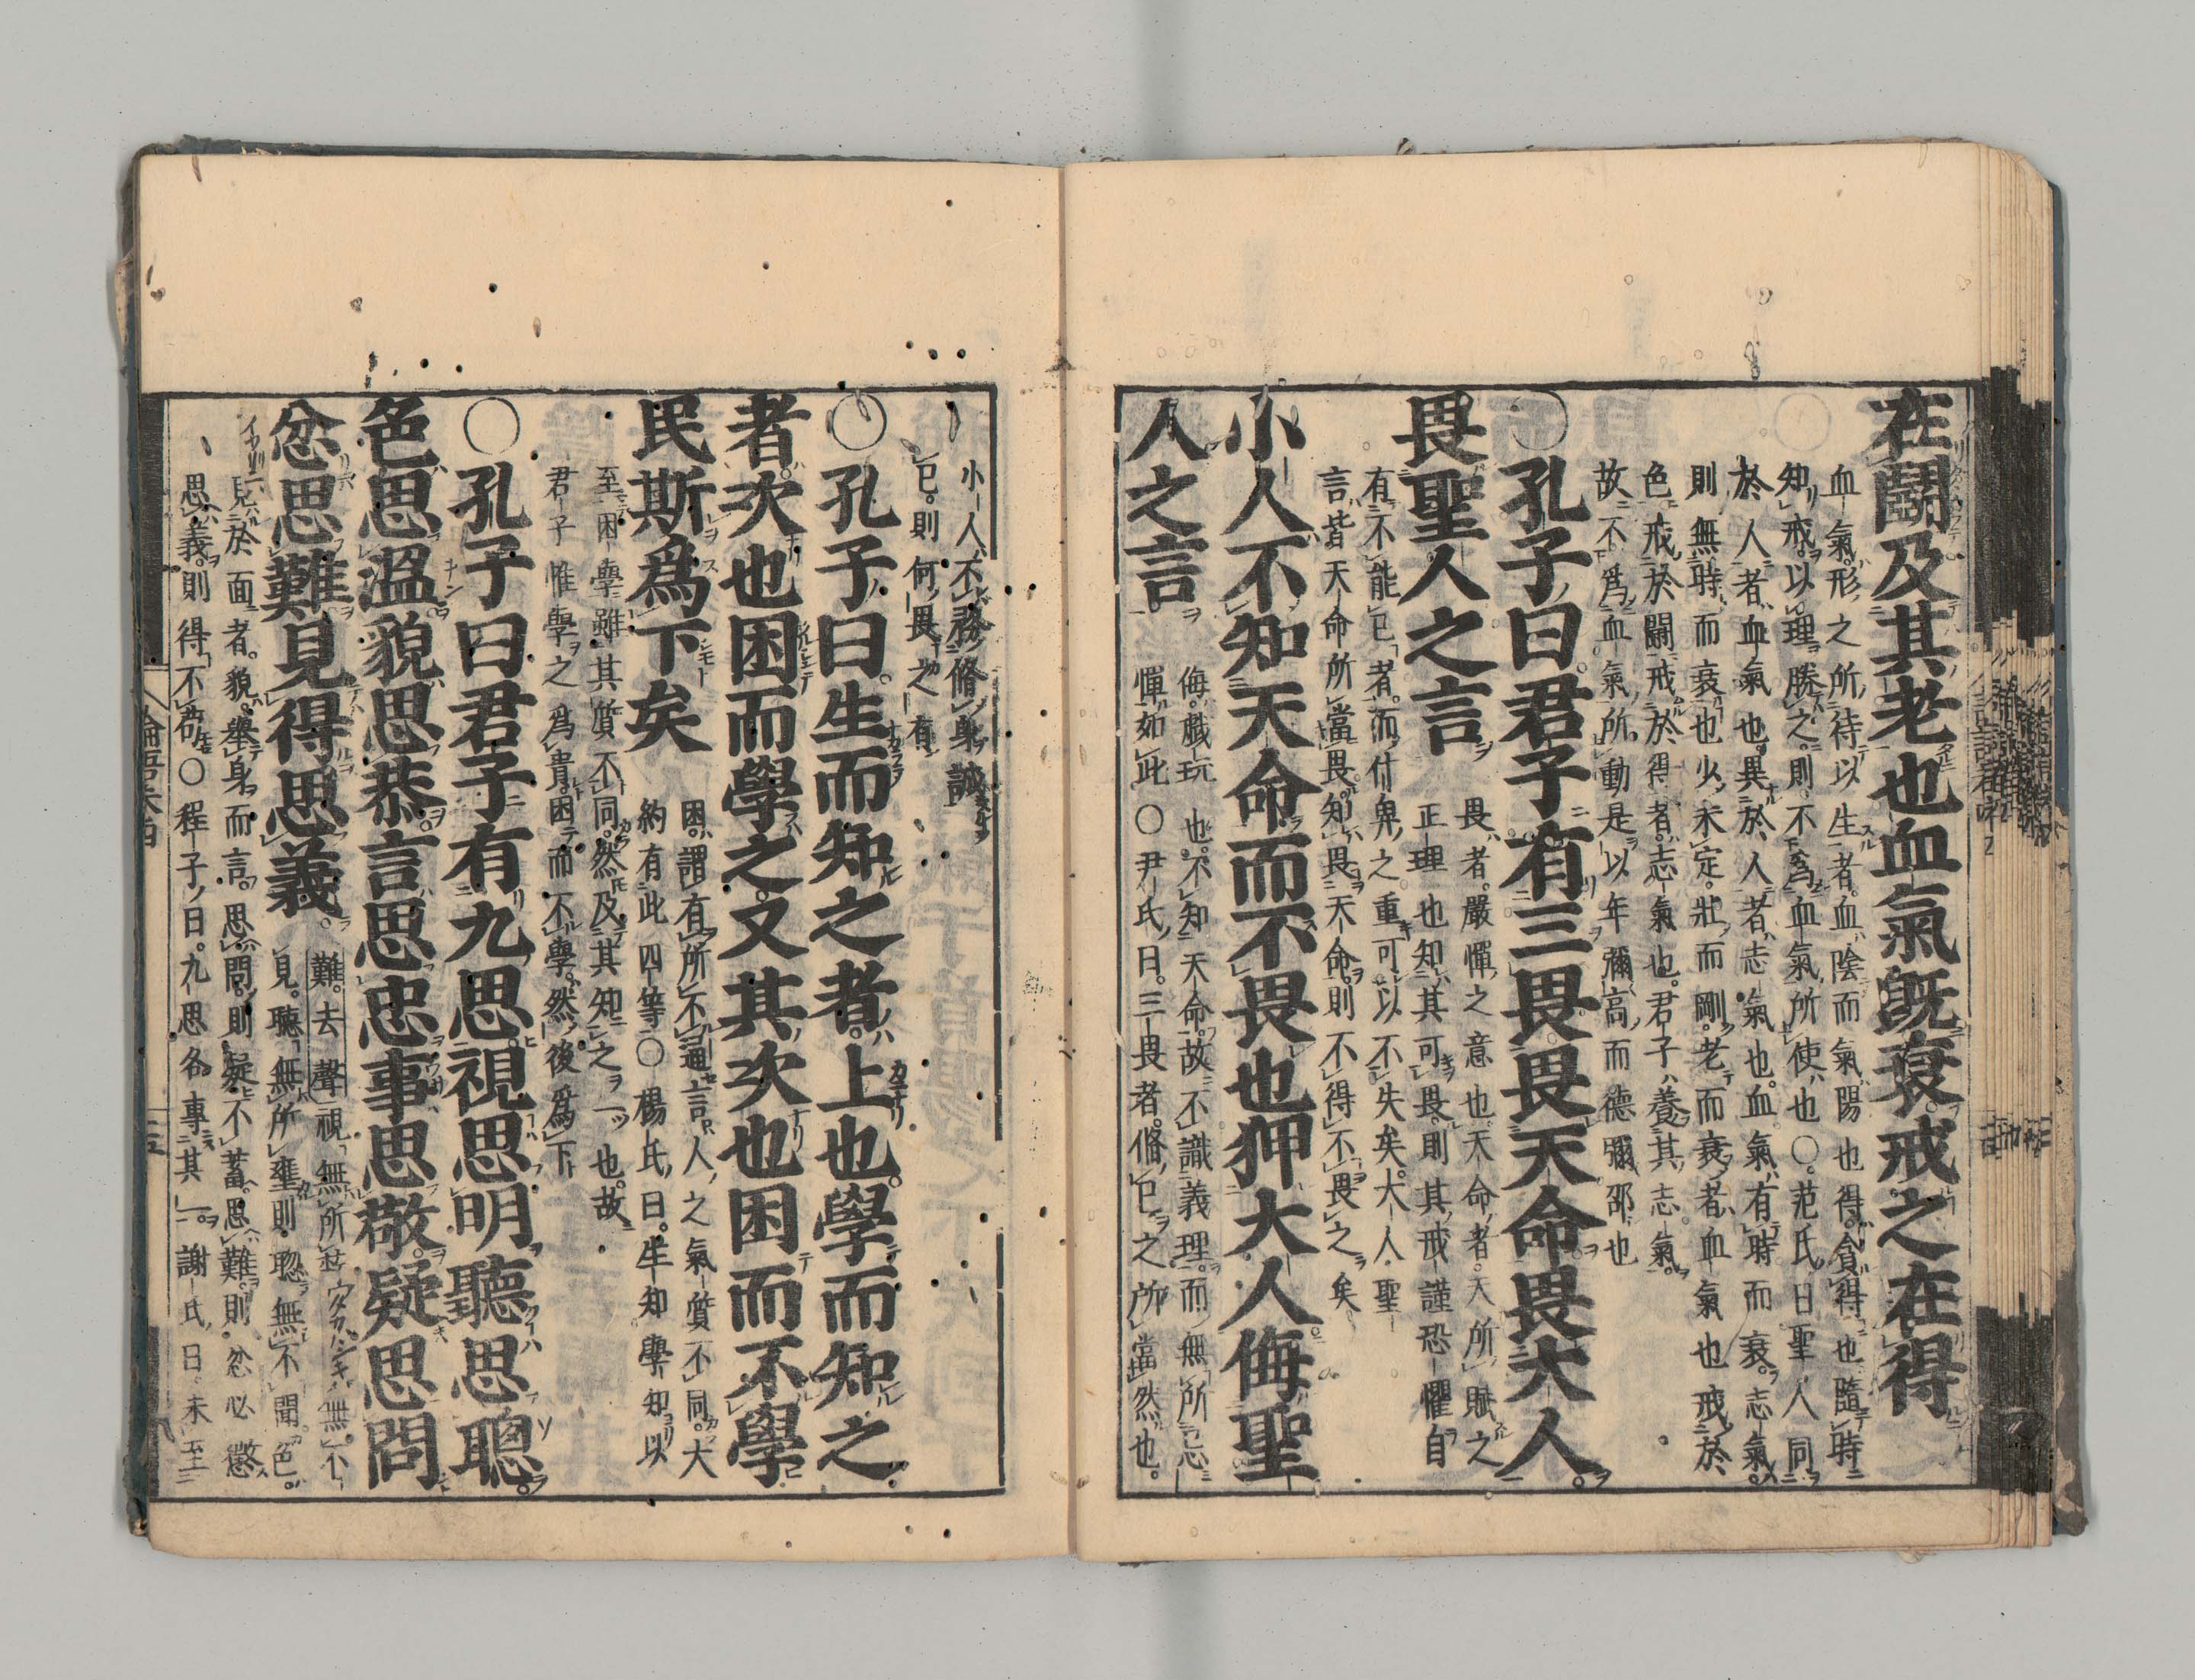 在鬪及其老也血氣既衰戒之在得
血氣形之所待以生者血陰而氣陽也得貪得也隨時
知戒以理勝之則不為血氣所使也○范氏曰聖人同
於人者血氣也異於人者志氣也血氣有時而衰志氣
則無時而衰也少未定壯而剛老而衰者血氣也戒於
色戒於鬪戒於得者志氣也君子養其志氣
故不為血氣所動是以年彌高而德彌邵也
○孔子曰君子有三畏畏天命畏大人
畏聖人之言
畏者嚴憚之意也天命者天所賦之
正理也知其可畏則其戒謹恐懼自
有不能已者而付畀之重可以不失矣大人聖
言皆天命所當畏知畏天命則不得不畏之矣
小人不知天命而不畏也狎大人侮聖
人之言
侮戲玩也不知天命故不識義理而無所忌
憚如此○尹氏曰三畏者脩已之所當然也
小人不務脩身誠
已則何畏之有
○孔子曰生而知之者上也學而知之
者次也困而學之又其次也困而不學
民斯爲下矣
困謂有所不通言人之氣質不同大
約有此四等○楊氏曰生知學知以
至困學雖其質不同然及其知之一也故
君子惟學之爲貴困而不學然後爲下
○孔子曰君子有九思視思明聽思聰
色思溫貌思恭言思忠事思敬疑思問
忿思難見得思義
難去聲視無所蔽則明無不
見聽無所壅則聰無不聞色
見於面者貌舉身而言思問則疑不蓄思難則忿必懲
思義則得不苟○程子曰九思各專其一謝氏曰未至